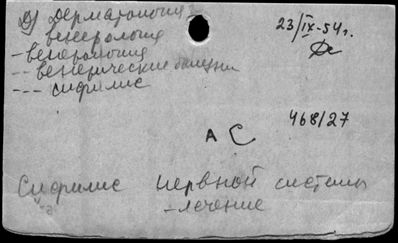 Дерматология
венерология
23/IX-54г.
- венерология
-- венерические болезни
--- сифилис
468/27
АС
Сифилис нервной системы
- лечение